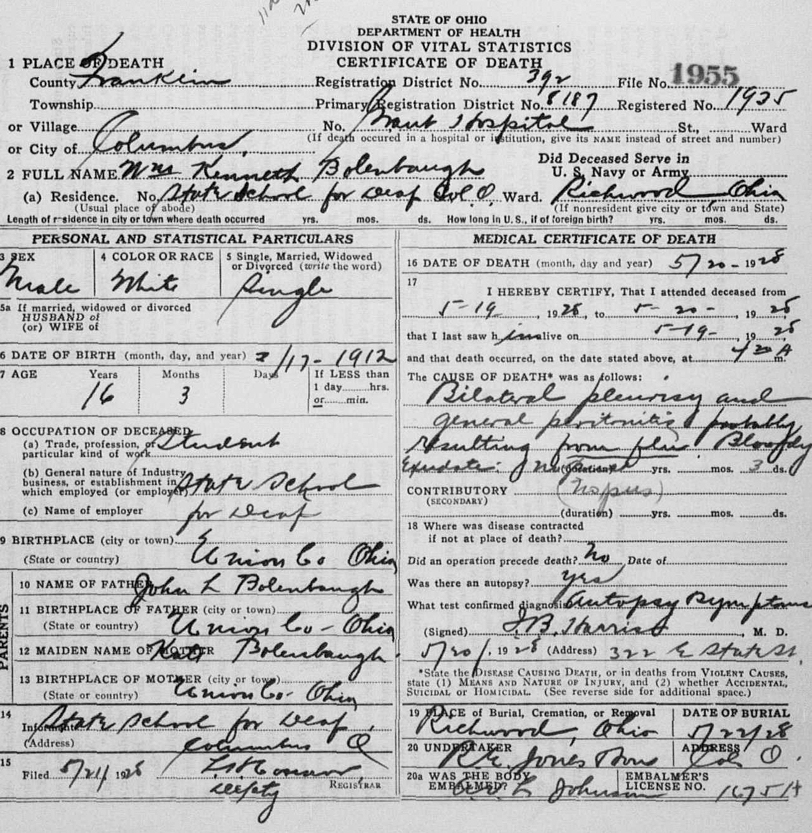 STATE OF OHIO
DEPARTMENT OF HEALTH
DIVISION OF VITAL STATISTICS
CERTIFICATE OF DEATH
1 PLACE OF DEATH
County Franklin Registration District No. 392 File No. 1955
Township Primary Registration District No. 8187 Registered No. 1935
or Village No. Grant Hospital St., Ward
(If death occured in a hospital or institution, give its NAME instead of street and number)
or City of Columbus,
2 FULL NAME Wm Kenneth Bolenbaugh
Did Deceased Serve in
U. S. Navy or Army
(a) Residence. No. State School for Deaf Col O. Ward. Richwood, Ohio
(Usual place of abode) (If nonresident give city or town and State)
Length of residence in city or town where death occurred yrs. mos. ds. How long in U.S., if of foreign birth? yrs. mos. ds.
PERSONAL AND STATISTICAL PARTICULARS
3 SEX Male
4 COLOR OR RACE White
5 Single, Married, Widowed
or Divorced (write the word)
Single
5a If married, widowed or divorced
HUSBAND of
(or) WIFE of
6 DATE OF BIRTH (month, day, and year) 2/17-1912
7 AGE Years Months Days If LESS than
16 3 1 day hrs.
or min.
8 OCCUPATION OF DECEASED
(a) Trade, profession, or
particular kind of work Student
(b) General nature of Industry
business, or establishment in
which employed (or employer) State School
(c) Name of employer for Deaf
9 BIRTHPLACE (city or town)
(State or country) Union Co Ohio
PARENTS
10 NAME OF FATHER John L Bolenbaugh
11 BIRTHPLACE OF FATHER (city or town)
(State or country) Union Co - Ohio
12 MAIDEN NAME OF MOTHER Bolenbaugh
13 BIRTHPLACE OF MOTHER (city or town)
(State or country) Union Co - Ohio
14 Informant State School for Deaf
(Address) Columbus O
15
Filed 5/21 1928
Deputy REGISTRAR
MEDICAL CERTIFICATE OF DEATH
16 DATE OF DEATH (month, day and year) 5/20-1928
17
I HEREBY CERTIFY, That I attended deceased from
5-19, 1928, to 5-20-, 1928
that I last saw him alive on 5-19-, 1928
and that death occurred, on the date stated above, at 420 A
The CAUSE OF DEATH* was as follows:
Bilateral pleurisy and
general peritonitis probably
resulting from flu. Bloody
Exudate. (duration) yrs. mos. 3 ds.
CONTRIBUTORY (No pus)
(SECONDARY)
(duration) yrs. mos. ds.
18 Where was disease contracted
if not at place of death?
Did an operation precede death? No Date of
Was there an autopsy? yes
What test confirmed diagnosis? Autopsy Symptoms
(Signed) Harris M. D.
5/20/, 1928 (Address) 322 E State St.
*State the DISEASE CAUSING DEATH, or in deaths from VIOLENT CAUSES,
state (1) MEANS AND NATURE OF INJURY, and (2) whether ACCIDENTAL,
SUICIDAL or HOMICIDAL. (See reverse side for additional space.)
19 PLACE of Burial, Cremation, or Removal DATE OF BURIAL
Richwood, Ohio 5/22/28
20 UNDERTAKER ADDRESS
R.E. Jones Sons Col O.
20a WAS THE BODY
EMBALMED? L Johnson
EMBALMER'S
LICENSE NO. 1675A